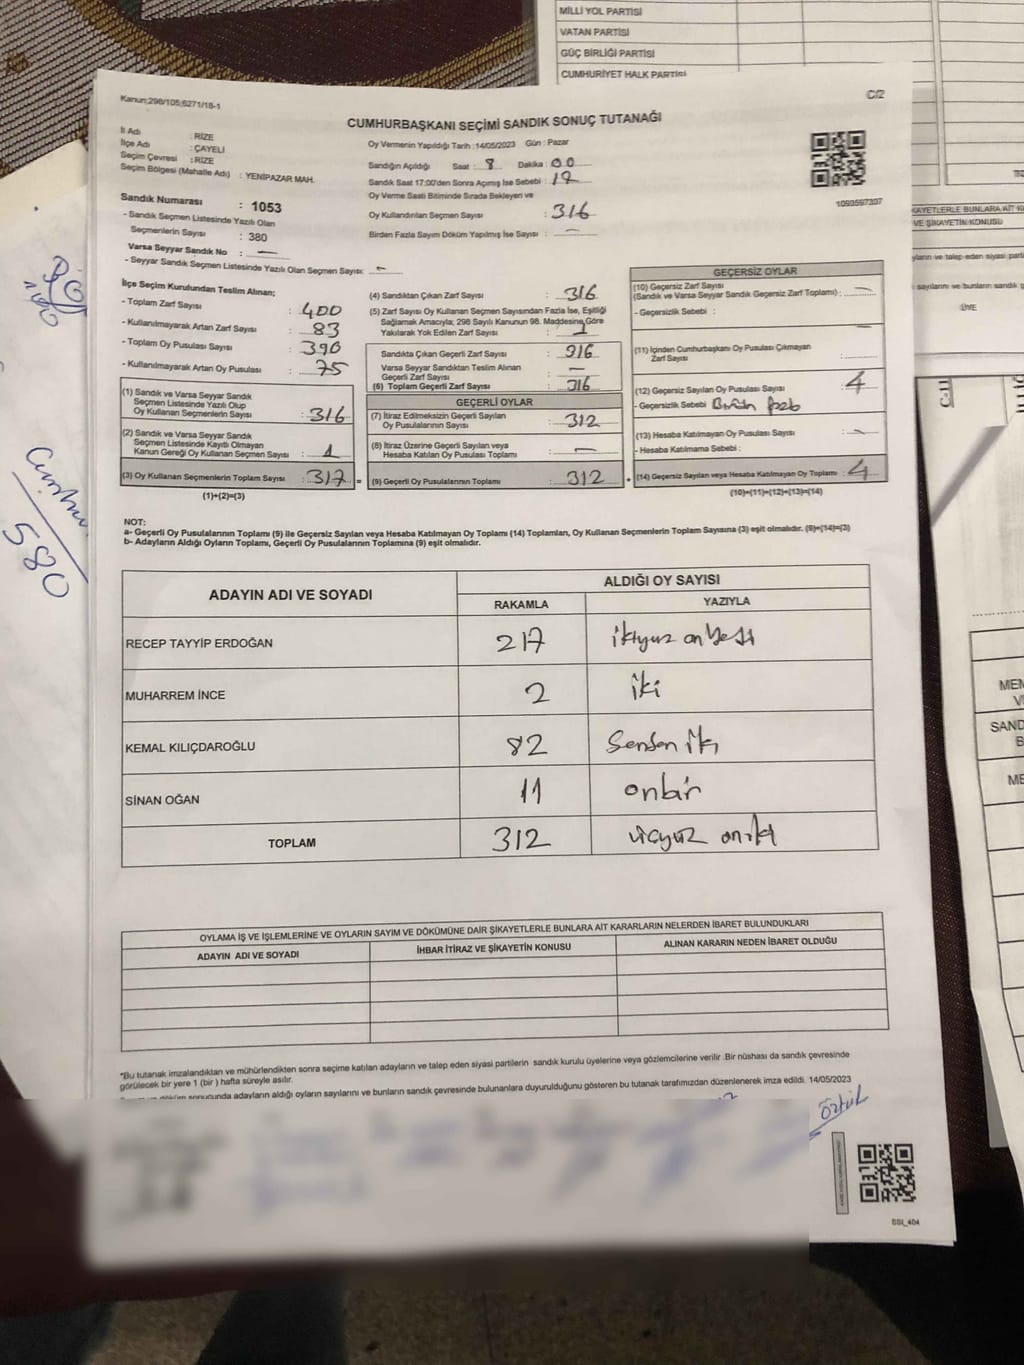 MİLLİ YOL PARTİSİ
VATAN PARTİSİ
GÜÇ BİRLİĞİ PARTİSİ
CUMHURİYET HALK PARTİSİ
Kanun;298/105;6271/18-1
C/2
CUMHURBAŞKANI SEÇİMİ SANDIK SONUÇ TUTANAĞI
İl Adı : RİZE
İlçe Adı : ÇAYELİ
Seçim Çevresi : RİZE
Seçim Bölgesi (Mahalle Adı) : YENİPAZAR MAH.
Sandık Numarası : 1053
- Sandık Seçmen Listesinde Yazılı Olan
Seçmenlerin Sayısı : 380
Varsa Seyyar Sandık No : —
- Seyyar Sandık Seçmen Listesinde Yazılı Olan Seçmen Sayısı: -
Oy Vermenin Yapıldığı Tarih :14/05/2023 Gün : Pazar
Sandığın Açıldığı Saat : 8 Dakika : 00
Sandık Saat 17:00'den Sonra Açımış İse Sebebi : 17
Oy Verme Saati Bitiminde Sırada Bekleyen ve
Oy Kullandırılan Seçmen Sayısı : 316
Birden Fazla Sayım Döküm Yapılmış İse Sayısı : —
1093597307
İlçe Seçim Kurulundan Teslim Alınan;
- Toplam Zarf Sayısı : 400
- Kullanılmayarak Artan Zarf Sayısı : 83
- Toplam Oy Pusulası Sayısı : 390
- Kullanılmayarak Artan Oy Pusulası : 75
(1) Sandık ve Varsa Seyyar Sandık
Seçmen Listesinde Yazılı Olup
Oy Kullanan Seçmenlerin Sayısı : 316
(2) Sandık ve Varsa Seyyar Sandık
Seçmen Listesinde Kayıtlı Olmayan
Kanun Gereği Oy Kullanan Seçmen Sayısı : 1
(3) Oy Kullanan Seçmenlerin Toplam Sayısı : 317
(1)+(2)=(3)
(4) Sandıktan Çıkan Zarf Sayısı : 316
(5) Zarf Sayısı Oy Kullanan Seçmen Sayısından Fazla İse, Eşitliği
Sağlamak Amacıyla; 298 Sayılı Kanunun 98. Maddesine Göre
Yakılarak Yok Edilen Zarf Sayısı : 1
Sandıkta Çıkan Geçerli Zarf Sayısı : 316
Varsa Seyyar Sandıktan Teslim Alınan
Geçerli Zarf Sayısı : —
(6) Toplam Geçerli Zarf Sayısı : 316
GEÇERLİ OYLAR
(7) İtiraz Edilmeksizin Geçerli Sayılan
Oy Pusulalarının Sayısı : 312
(8) İtiraz Üzerine Geçerli Sayılan veya
Hesaba Katılan Oy Pusulası Toplamı : —
(9) Geçerli Oy Pusulalarının Toplamı : 312
GEÇERSİZ OYLAR
(10) Geçersiz Zarf Sayısı
(Sandık ve Varsa Seyyar Sandık Geçersiz Zarf Toplamı) : —
- Geçersizlik Sebebi :
(11) İçinden Cumhurbaşkanı Oy Pusulası Çıkmayan
Zarf Sayısı :
(12) Geçersiz Sayılan Oy Pusulası Sayısı : 4
- Geçersizlik Sebebi
(13) Hesaba Katılmayan Oy Pusulası Sayısı : —
- Hesaba Katılmama Sebebi :
(14) Geçersiz Sayılan veya Hesaba Katılmayan Oy Toplamı : 4
(10)+(11)+(12)+(13)=(14)
NOT:
a- Geçerli Oy Pusulalarının Toplamı (9) ile Geçersiz Sayılan veya Hesaba Katılmayan Oy Toplamı (14) Toplamları, Oy Kullanan Seçmenlerin Toplam Sayısına (3) eşit olmalıdır. (9)+(14)=(3)
b- Adayların Aldığı Oyların Toplamı, Geçerli Oy Pusulalarının Toplamına (9) eşit olmalıdır.
ADAYIN ADI VE SOYADI
ALDIĞI OY SAYISI
RAKAMLA YAZIYLA
RECEP TAYYİP ERDOĞAN 217 ikiyüz onyedi
MUHARREM İNCE 2 iki
KEMAL KILIÇDAROĞLU 82 Seksen iki
SİNAN OĞAN 11 onbir
TOPLAM 312 üçyüz oniki
OYLAMA İŞ VE İŞLEMLERİNE VE OYLARIN SAYIM VE DÖKÜMÜNE DAİR ŞİKAYETLERLE BUNLARA AİT KARARLARIN NELERDEN İBARET BULUNDUKLARI
ADAYIN ADI VE SOYADI
İHBAR İTİRAZ VE ŞİKAYETİN KONUSU
ALINAN KARARIN NEDEN İBARET OLDUĞU
*Bu tutanak imzalandıktan ve mühürlendikten sonra seçime katılan adayların ve talep eden siyasi partilerin sandık kurulu üyelerine veya gözlemcilerine verilir .Bir nüshası da sandık çevresinde
görülecek bir yere 1 (bir ) hafta süreyle asılır.
sonucunda adayların aldığı oyların sayılarını ve bunların sandık çevresinde bulunanlara duyurulduğunu gösteren bu tutanak tarafımızdan düzenlenerek imza edildi. 14/05/2023
SSI_404
580
VE ŞİKAYETİN KONUSU
ÜYE